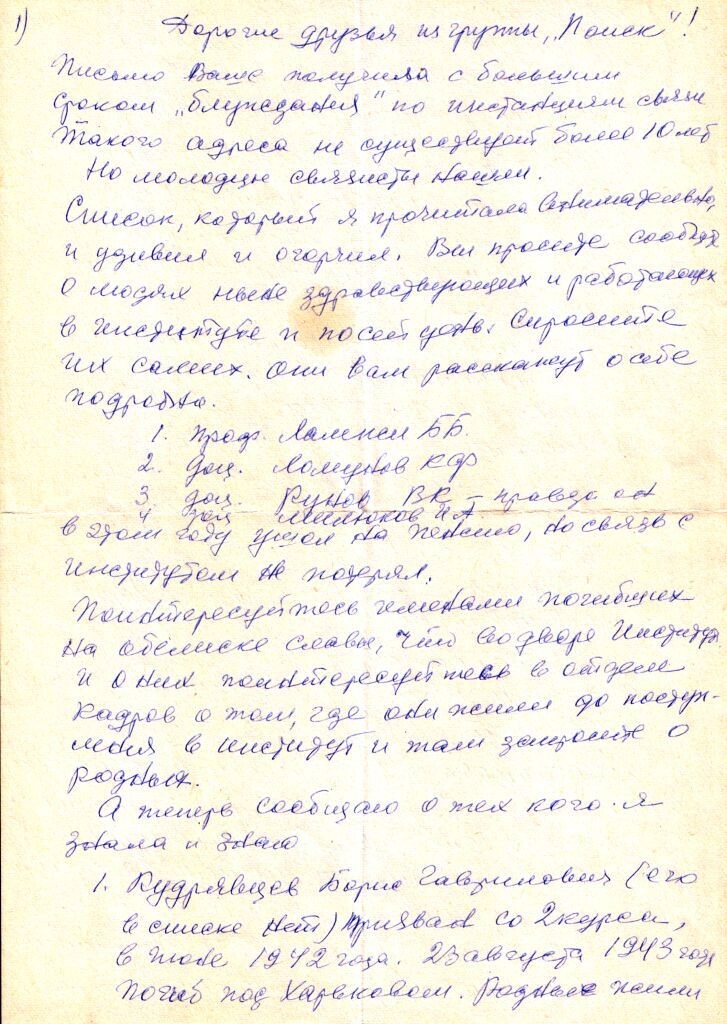 1)
Дорогие друзья из группы „Поиск"!
Письмо Ваше получила с большим
сроком „блуждания" по инстанциям связи
Такого адреса не существует более 10 лет
Но молодцы связисты нашли.
Список, который я прочитала внимательно,
и удивил и огорчил. Вы просите сообщить
о людях ныне здравствующих и работающих
в институте и посему Спросите
их самих. Они вам расскажут о себе
подробно.
1. проф. Лапкин ББ.
2. доц. Ломунов КФ
3 доц. Рунов ВК правда он
4 доц Милюков НА
в этом году ушел на пенсию, но связь с
институтом не потерял.
Поинтересуйтесь именами погибших
на обелиске славы, что во дворе Института
И о них поинтересуйтесь в отделе
кадров о том, где они жили до поступ-
ления в институт и там запросите о
родных.
А теперь сообщаю о тех кого я
знала и знаю
1. Кудрявцев Борис Гаврилович (его
в списке нет) Призван со 2 курса,
в июне 1942 года. 23 августа 1943 года
погиб под Харьковом. Родные жили